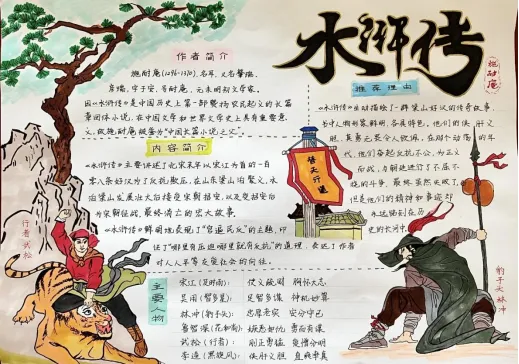 水浒传
施耐庵
作者简介
施耐庵(1296-1370),名耳,又名肇瑞,
彦端,字子安,号耐庵,元末明初文学家。
因《水浒传》是中国历史上第一部赞扬农民起义的长篇
章回体小说,在中国文学和世界文学史上具有重要意
义,故施耐庵被誉为"中国长篇小说之父"。
内容简介
《水浒传》主要讲述了北宋末年以宋江为首的一百
零八条好汉为了反抗欺压,在山东梁山泊聚义,水
泊梁山发展壮大后接受宋朝招安,以及受招安后
为宋朝征战,最终消亡的宏大故事。
《水浒传》鲜明地表现了"官逼民反"的主题,印
证了"哪里有压迫哪里就有反抗"的道理,表达了作者
对人人平等友爱社会的向往。
推荐理由
《水浒传》生动描绘了一群梁山好汉的传奇故事,
书中人物形象鲜明,各具特色,他们的侠肝义
胆,英勇无畏令人钦佩,在那个动荡的年
代,他们奋起反抗不公,为正义
而战,与朝廷进行了不屈不
挠的斗争,最终虽然失败了,
但是他们的精神和事迹却
永远镌刻在历
史的长河中
替天行道
行者武松
豹子头林冲
主要人物
宋江(及时雨): 仗义疏财 胸怀大志
吴用(智多星): 足智多谋 神机妙算
林冲(豹子头): 忠厚老实 安分守己
鲁智深(花和尚): 嫉恶如仇 勇而有谋
武松(行者): 刚正勇猛 爱憎分明
李逵(黑旋风): 侠肝义胆 直爽率真